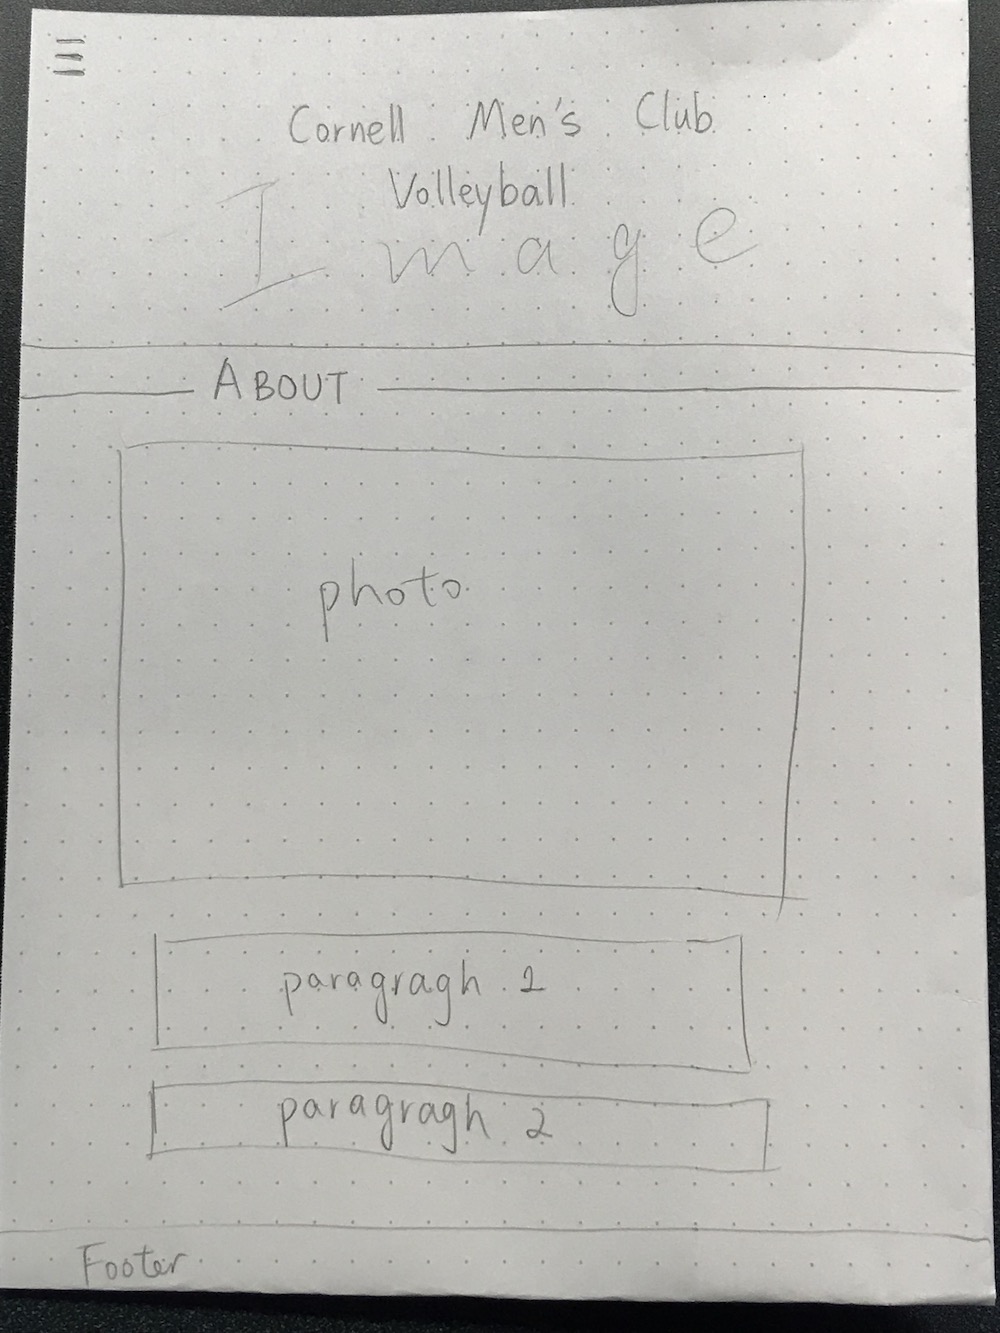 Cornell Men's Club
Volleyball
Image
ABOUT
photo
paragragh 1
paragragh 2
Footer